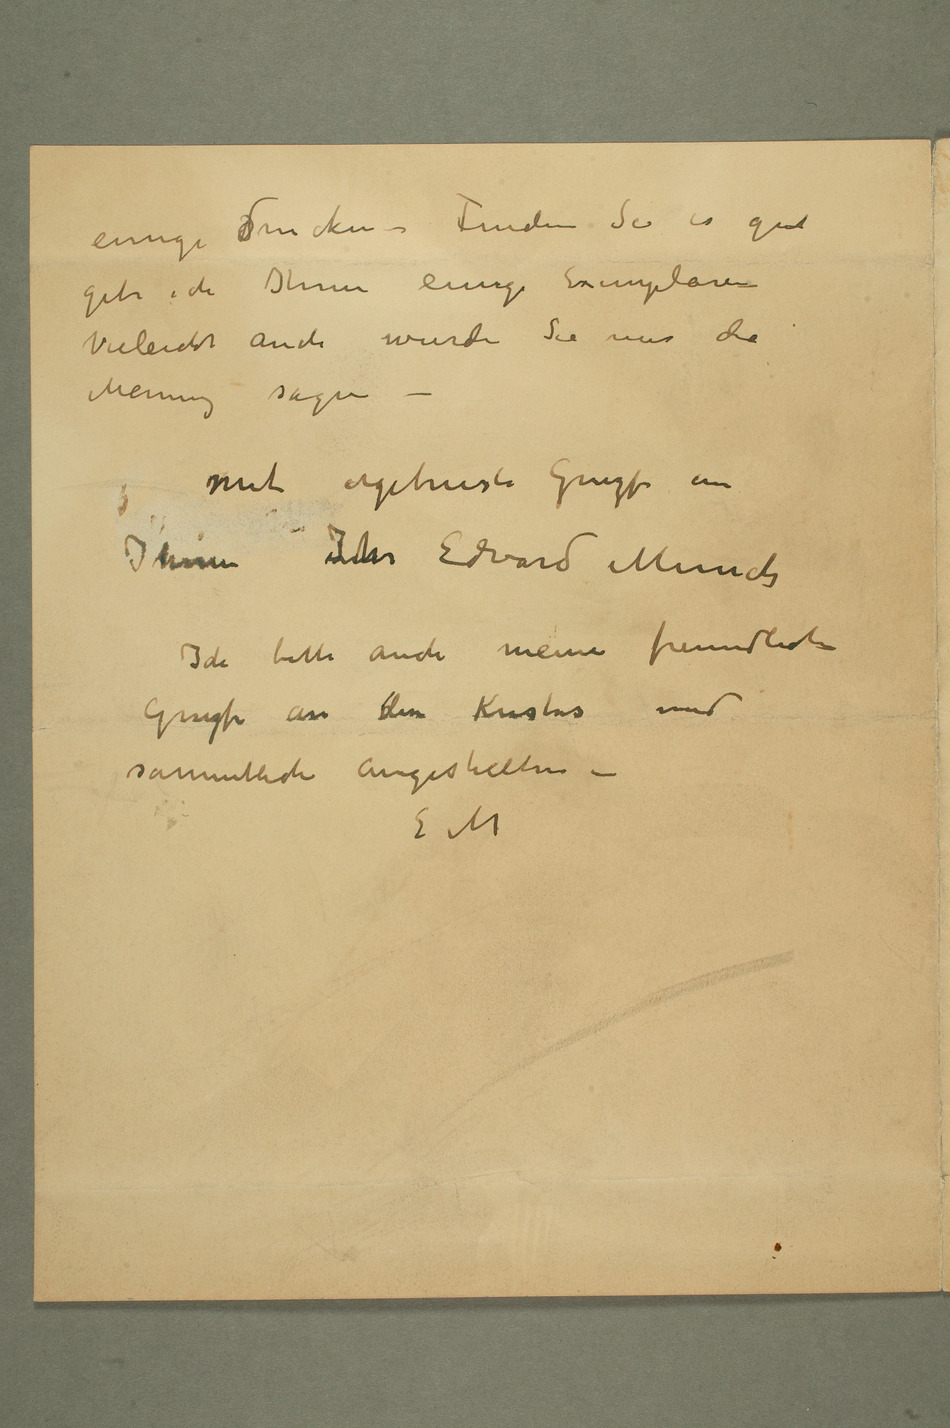 einige Drucken – Finden Sie es gut
gebe ich Ihnen einige Exemplaren
Vieleicht auch wurde Sie mir die
Meinung sagen –
mit ergebenste Grüße an
Ihnen Ihr Edvard Munch
Ich bitte auch meine freundliche
Grüße an den Kustos und
sammtliche Angestellten –
E M